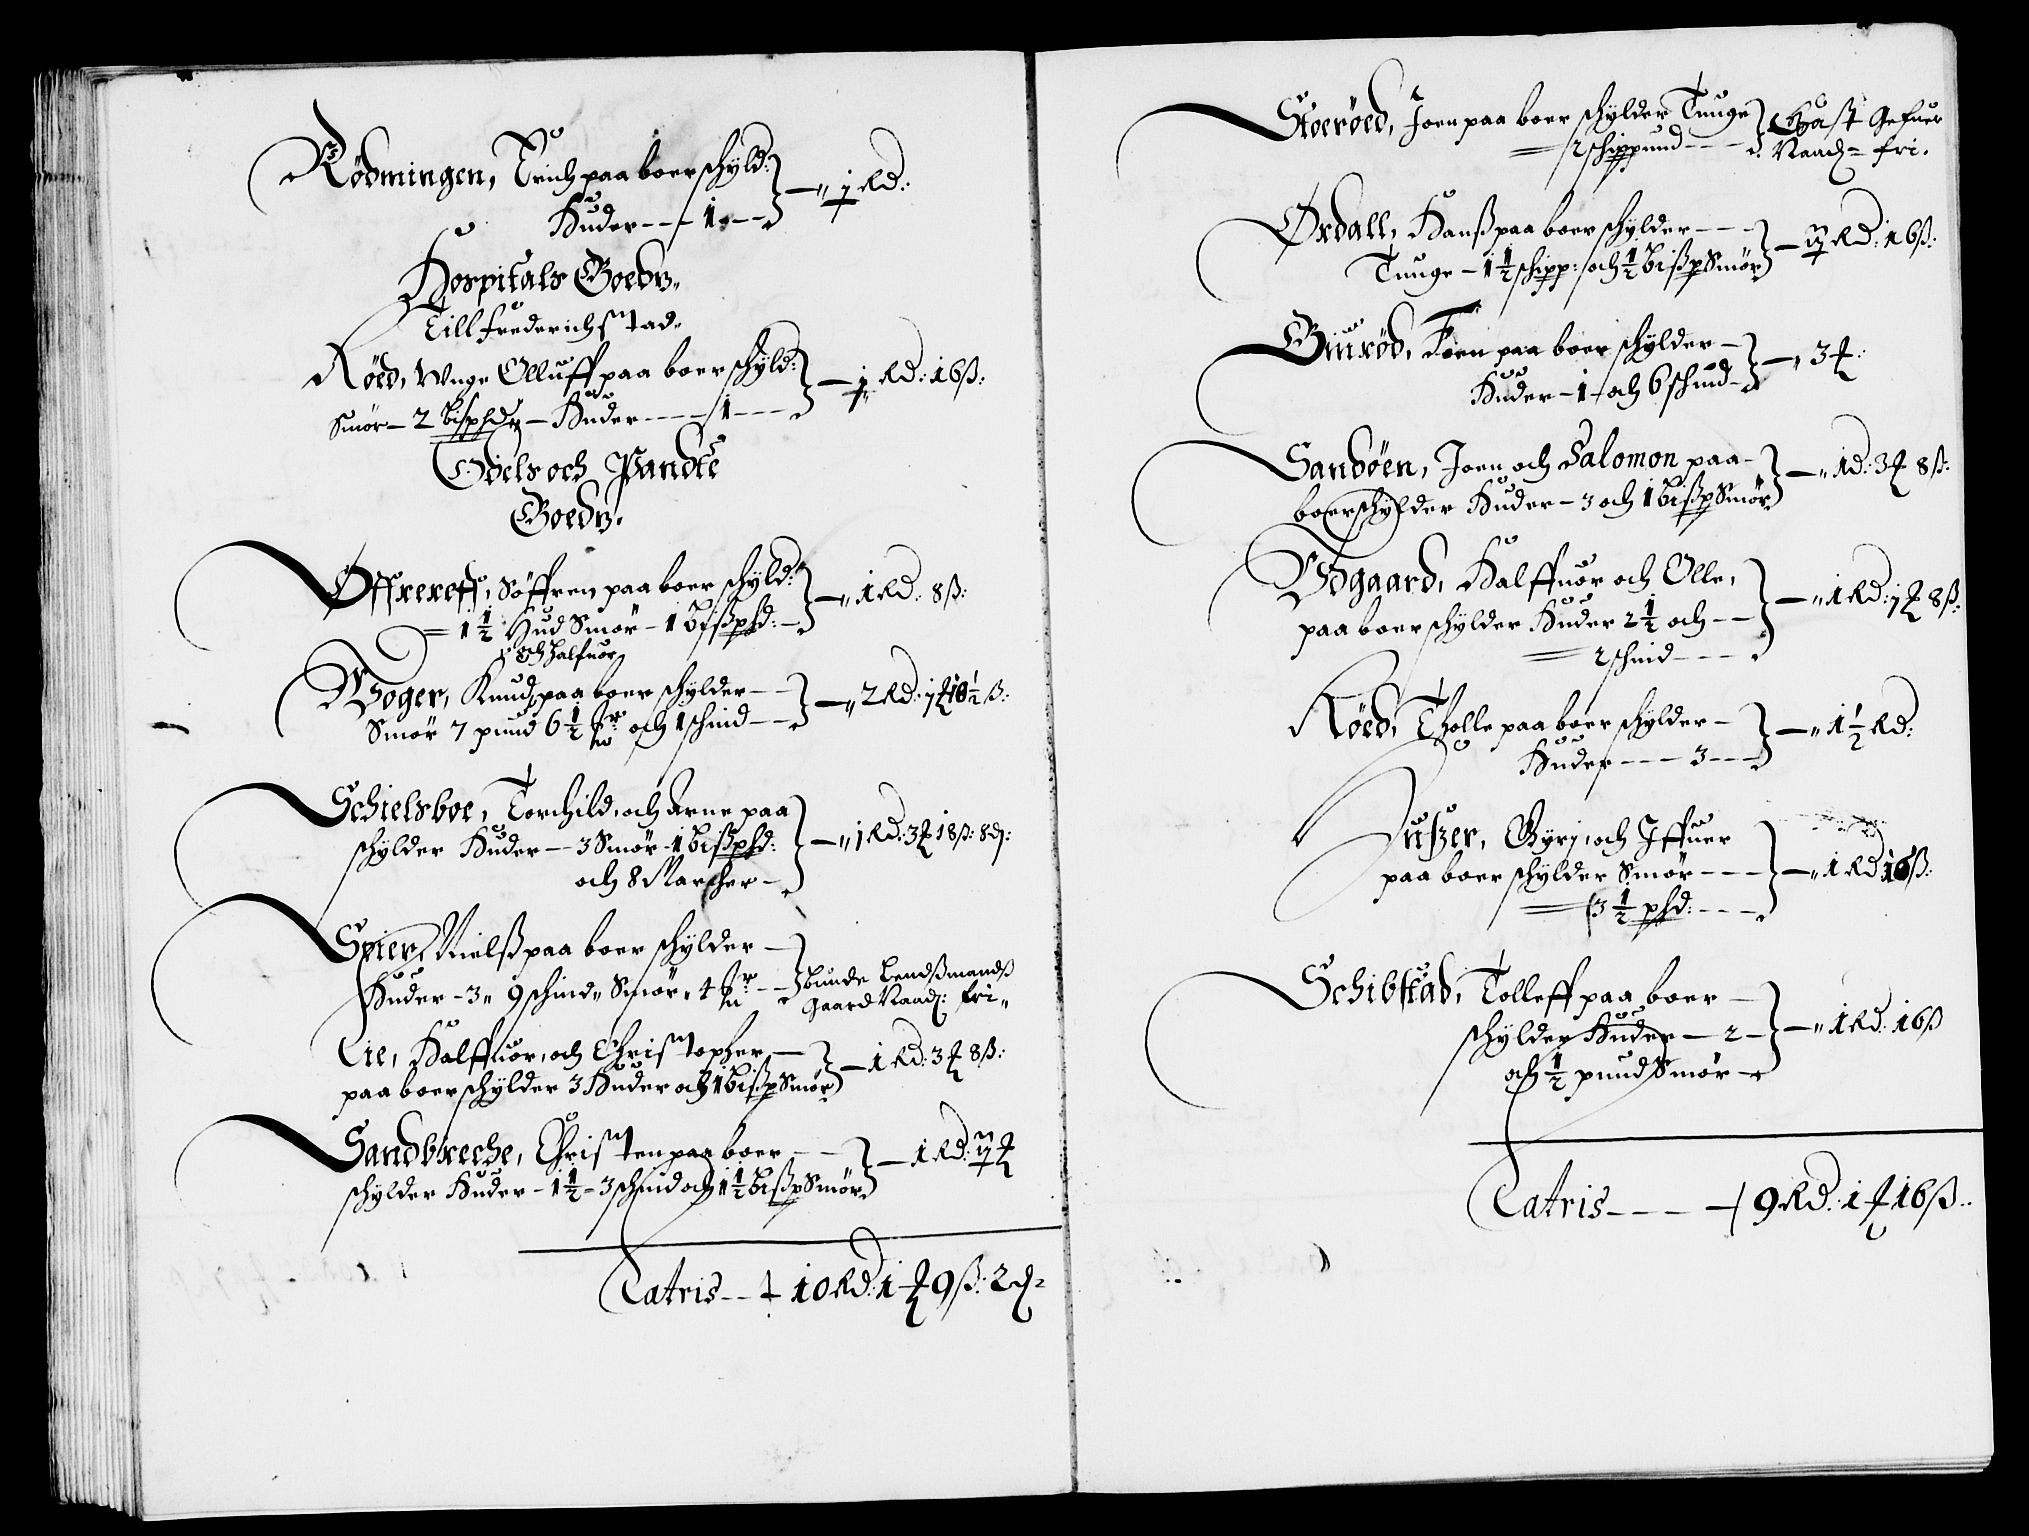 Rödmingen, Erich paa boer schÿld:
Huder --- 1 --- ½ Rd:
Hospitals Goedtz
Till frederichstad
Röed, Unge Olluff paa boer schÿld:
Smör - 2 Bispd - Huder ---- 1 --- ½ Rd: 16ß:
Odels och Pandte
Goedtz
Søffren paa boer schÿld:
1½ Hud Smör - 1 Bißpd: - 1 Rd: 8ß:
och Halfuor
Woger, Knud, paa boer schÿlder --
Smör 7 pund 6½ och 1 schind -- 2 Rd:
Schielsboe, Torchild, och Arne paa
schÿlder Huder - 3 Smör - 1 Bißpd:
och 8 Marcher - 1 Rd: 3 18ß: 8d:
Spier, Nielß paa boer schÿlder -
Huder - 3 9 schind Smör, 4
bunde Lendßmandß
Gaard Naad: fri
Lie, Halffuor, och Christopher -
paa boer schÿlder 3 Huder och 1 Bißp Smör - 1 Rd: 3 8ß:
Sandbreche, Christen paa boer --
schÿlder Huder - 1½ - 3 schind och 1½ Bißp Smör - 1 Rd:
Latris -- 10 Rd: 1 9ß: 2
Stoeröed, Joen paa boer schÿlder Tunge
2 schippund ---
Naad = fri.
Ørdall, Hanß paa boer schÿlder ---
Tunge - 1½ schipp: och ½ Bißp Smör - Rd: 16ß:
Foen paa boer schÿlder -
Huder - 1 och 6 schind - 3
Sandöen, Joen och Salomon paa -
boer schÿlder Huder - 3 och 1 Bißp Smör - 1 d: 3 8ß:
Wogaard, Halffuor och Olle,
paa boer schÿlder Huder 2½ och --
2 schind --- 1 Rd: 8ß:
Röed, Tholle paa boer schÿlder -
Huder ---- 3 --- 1½ Rd:
Gÿri, och Iffuer
paa boer schÿlder Smör ---
3½ pd: --- 1 Rd 16ß:
Schibstad, Tolleff paa boer -
schÿlder Huder - 2 -
och ½ pund Smör - 1 Rd: 16ß
Latris ---- 9 Rd: 1 16ß: